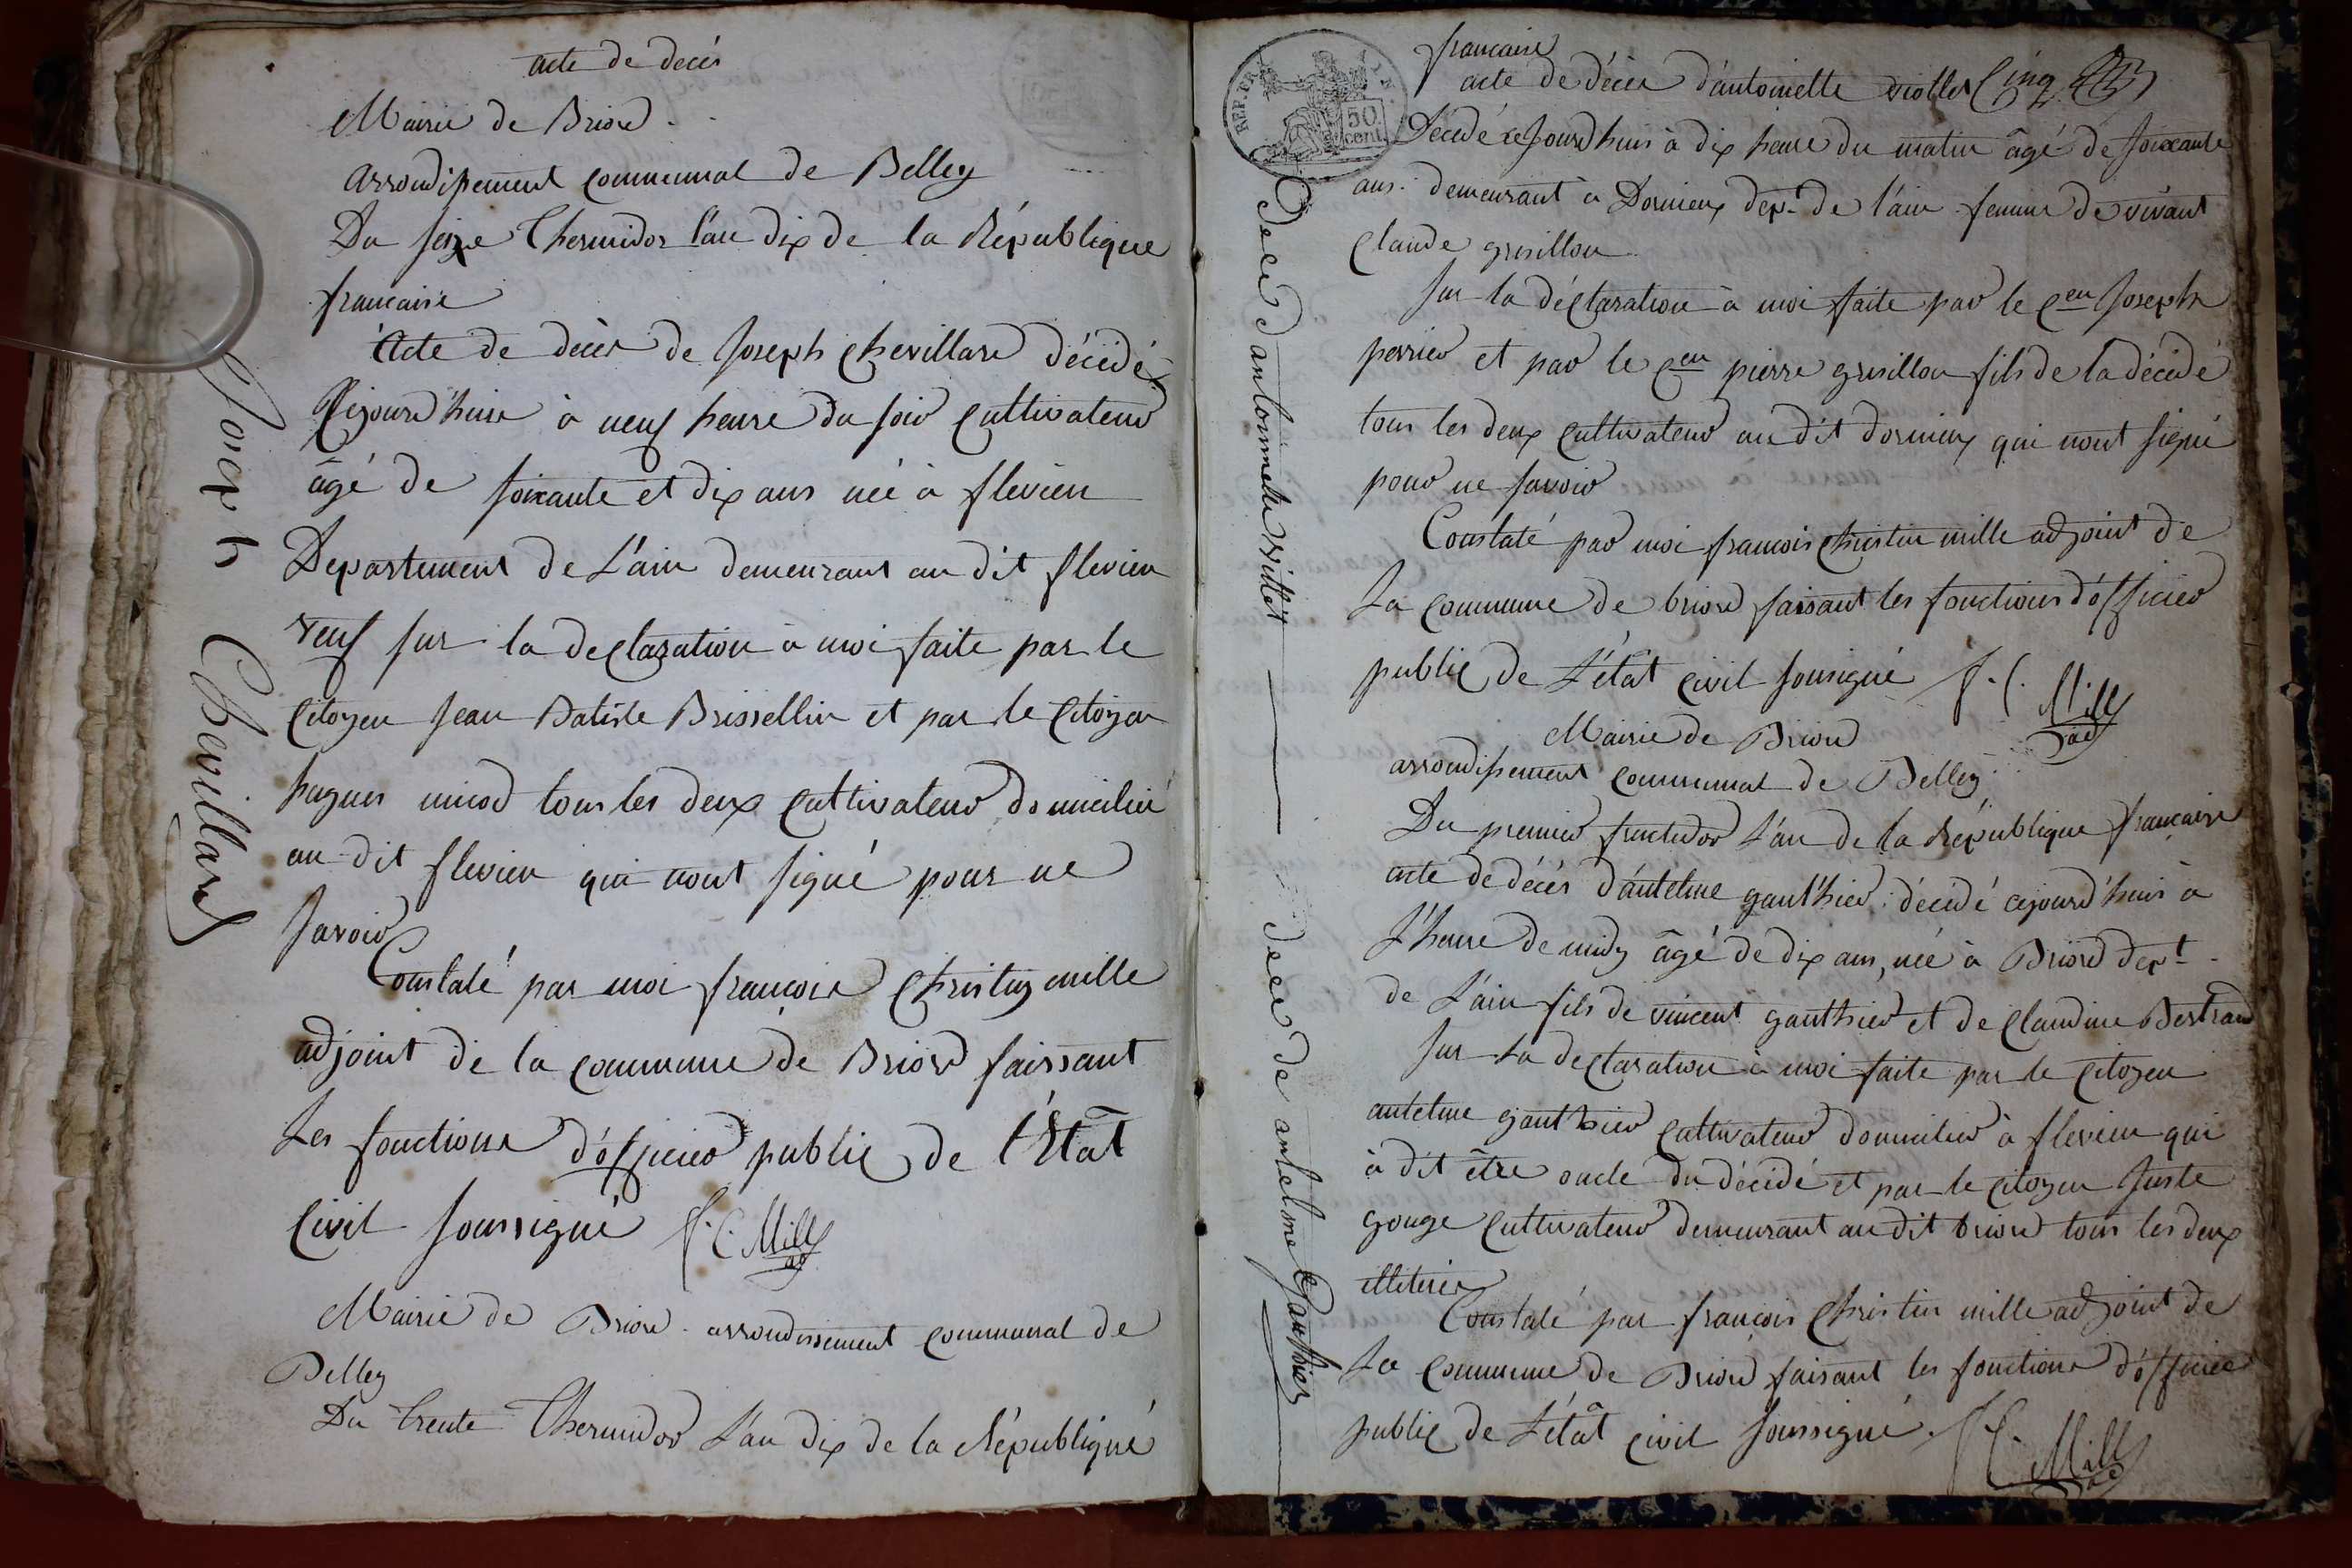 acte de decés
Mairie de Briord
arrondissement communal de Belley
Du seize Thermidor l'an dix de la République
francaise
Acte de décès de Joseph Chevillard décédé
cejourd'huis à neuf heure du soir cultivateur
âgé de soixante et dix ans née à flevieu
Departement de L'ain demeurant au dit flevieu
veuf sur la declaration à moi faite par le
Citoyen Jean Batiste Brissellin et par le Citoyen
hugues miod tous les deux cultivateur domicilié
au dit flevieu qui nont signé pour ne
savoir
Constaté par moi francois Christin mille
adjoint de la commune de Briord faissant
Les fonctions d'officier public de l'Etat
Civil soussigné f. C. Mille
ad
Mairie de Briord arrondissement communal de
Belley
Du trente Thermidor L'an dix de la République
Joseph Chevillard
REP. FRA.
50
cent.
francaise
acte de décès d'antoinette viollet Cinq
Décédé cejourdhuis à dix heure du matin âgé de soixante
ans demeurant à Dornieux dept. de l'ain femme de vivant
Claude grisillon
Sur la déclaration à moi faite par le Cen Joseph
perrier et par le Cen pierre grisillon fils de la décédé
tous les deux cultivateur au dit dornieux qui nont signé
pour ne savoir
Constaté par moi francois Christin mille adjoint de
La commune de briord faisant les fonctions d'officier
public de L'état civil sousigné f. C. Mille
ad
Mairie de Briord
arrondissement communal de Belley
Du premier fructidor L'an de la République francaise
acte de décès d'antelme gauthier décédé cejourd'huis à
L'heure de midy âgé de dix ans, née à Briord dept
de L'ain fils de vincent gauthier et de Claudine Bertrand
Sur La declaration à moi faite par le Citoyen
antelme gauthier cultivateur domicilier à flevieu qui
à dit être oncle du décédé et par le citoyen Juste
gouge cultivateur demeurant au dit briord tous les deux
illiterer
Constaté par françois Christin mille adjoint de
La commune de Briord faisant les fonctions d'officier
public de L'état civil soussigné f. C. Mille
ad
Deces d'antoinette viollet
Deces de antelme Gauthier